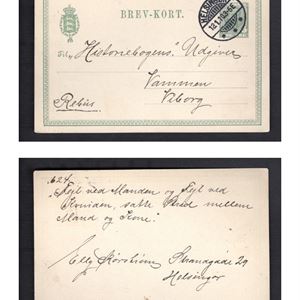 BREV-KORT.
Til „Historiebogens" Udgiver
Vammen
Viborg
Rebus
624.
„Fejl ved Manden og Fejl ved
Kvinden, satte Strid mellem
Mand og Kone."
Elly Korsholm Strandgade 29
Helsingør